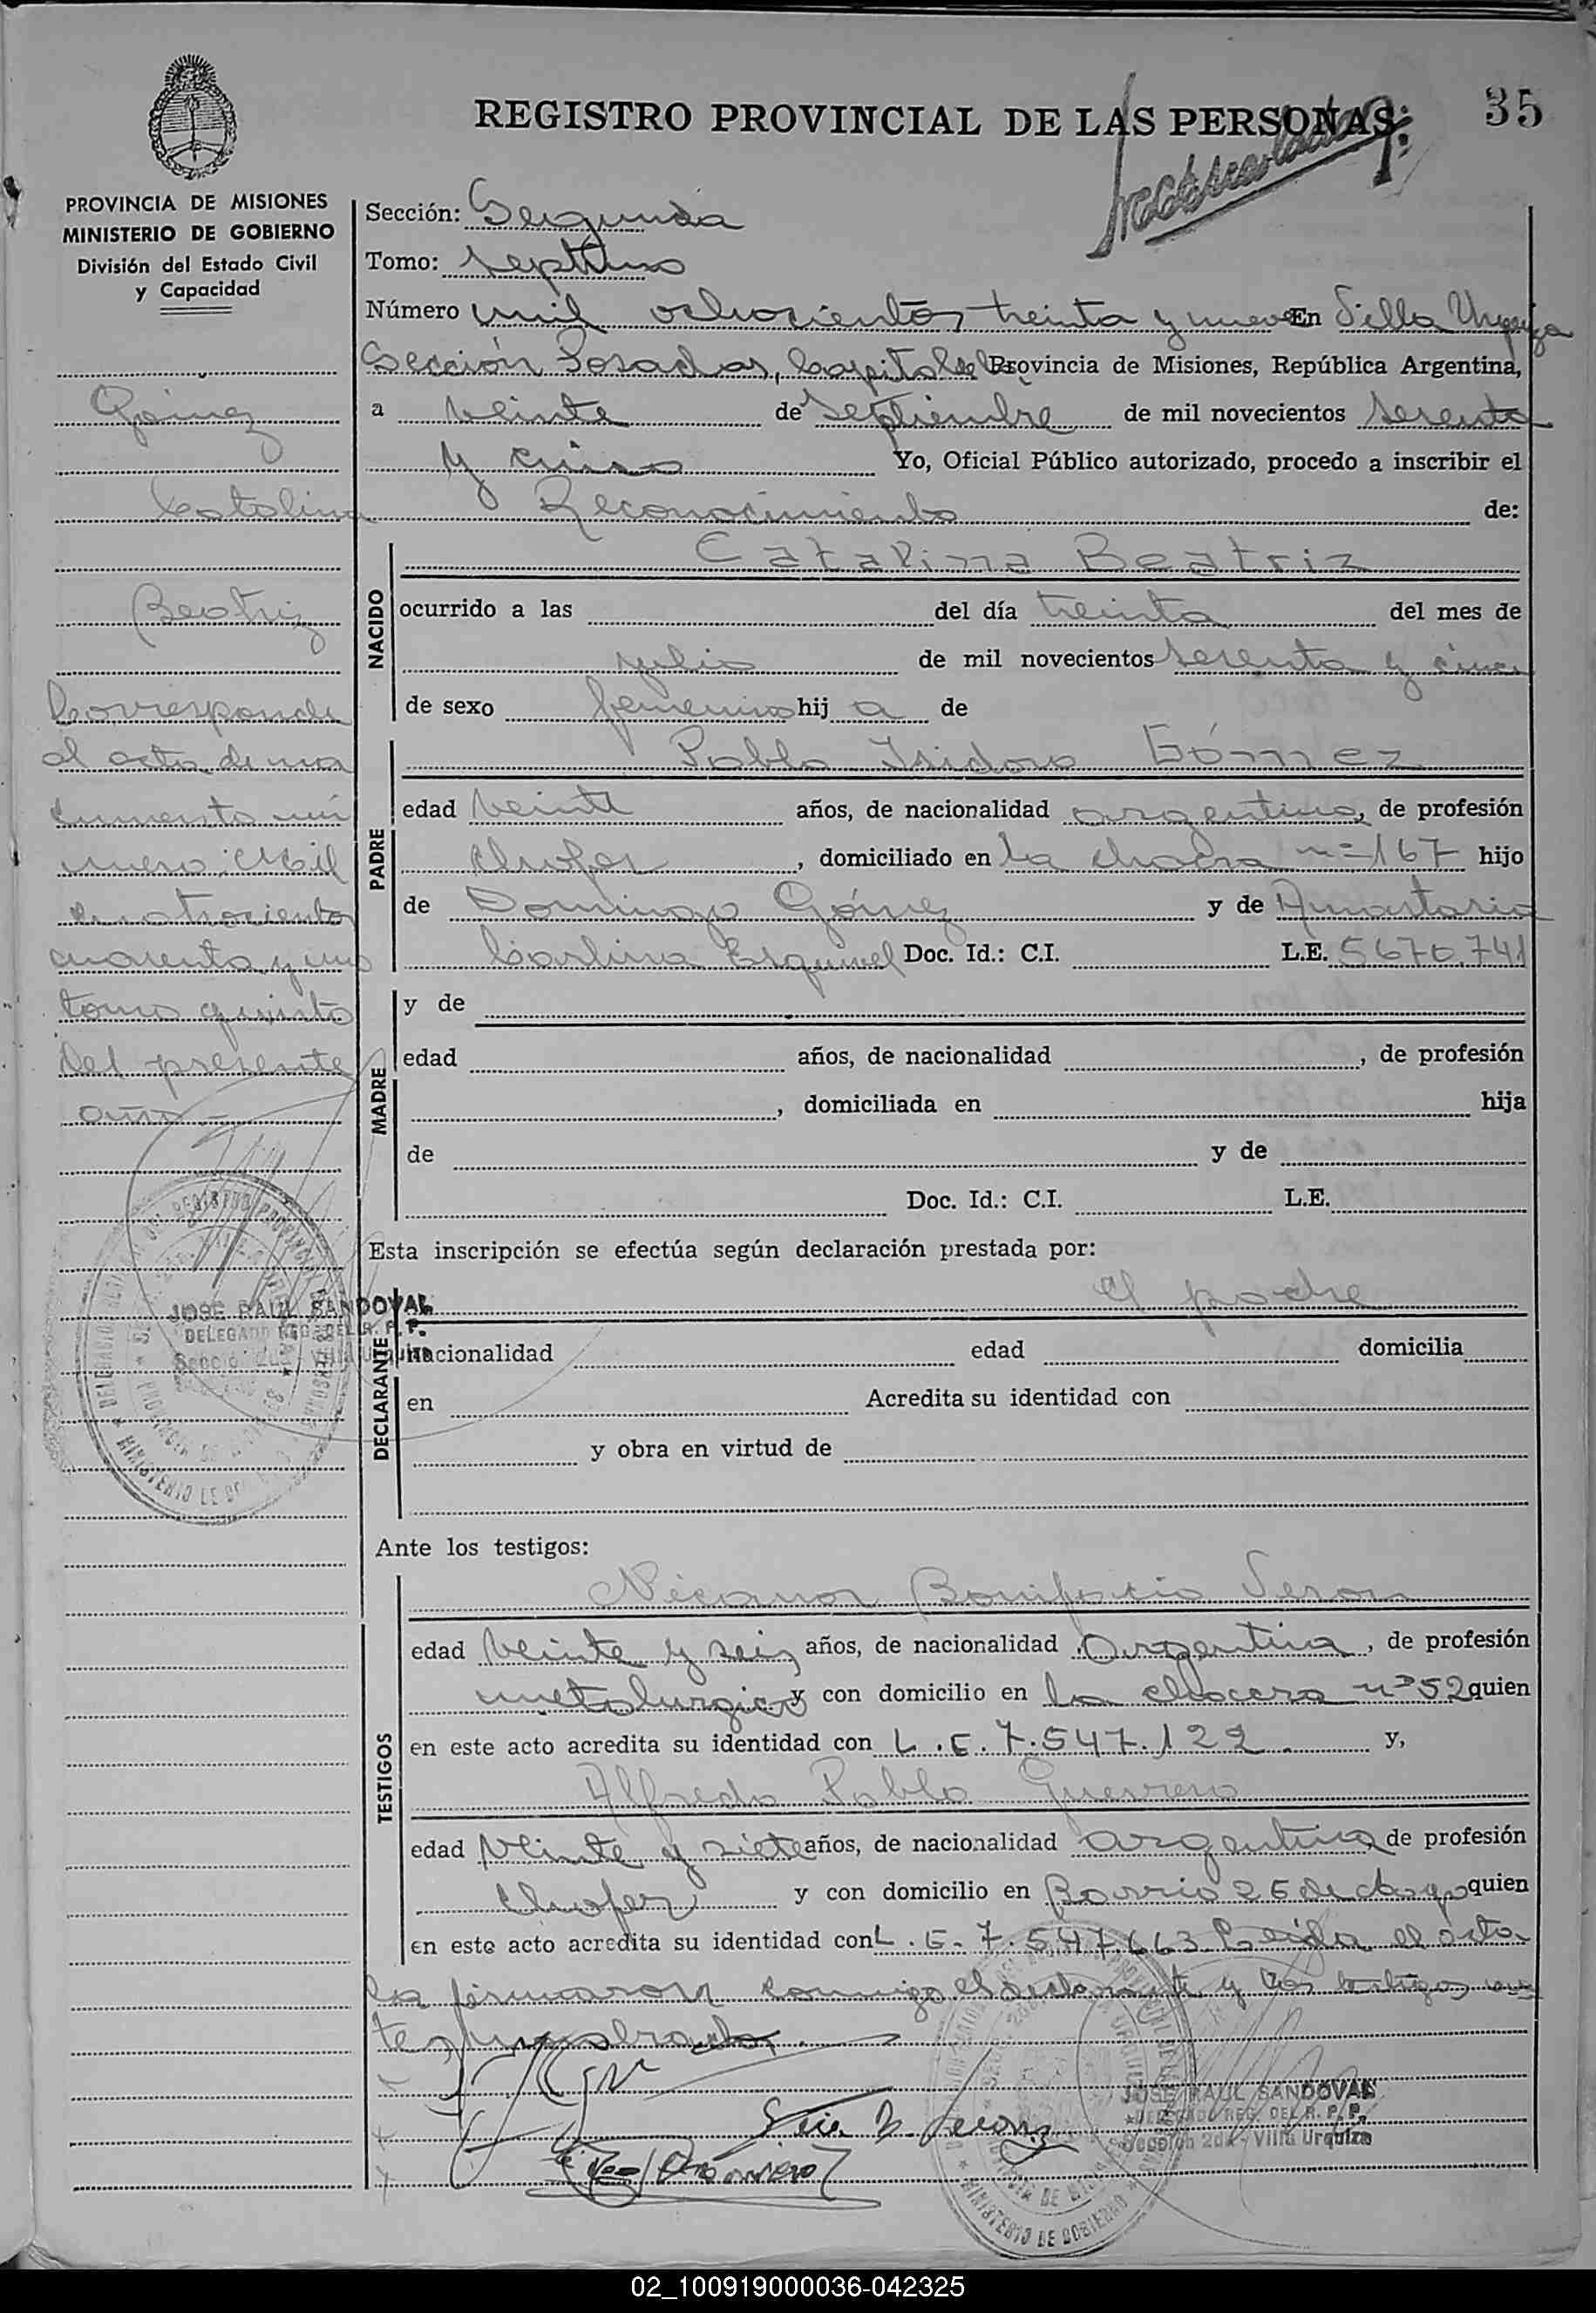 REGISTRO PROVINCIAL DE LAS PERSONAS
35
PROVINCIA DE MISIONES
MINISTERIO DE GOBIERNO
División del Estado Civil
y Capacidad
Gómez
Catalina
Beatriz
Corresponde
al acta de na
cimiento nú
mero: Mil
cuatrocientos
cuarenta y uno
tomo quinto
del presente
año.-
JOSE RAUL SANDOVAL
DELEGADO REG. DEL R. P. P.
Sección 2da - Villa Urquiza
Sección: Segunda
Tomo: septimo
Número mil ochocientos treinta y nueve En Villa Urquiza
Sección Posadas, Capital de la Provincia de Misiones, República Argentina,
a veinte de Septiembre de mil novecientos sesenta
y cinco Yo, Oficial Público autorizado, procedo a inscribir el
Reconocimiento de:
NACIDO
Catalina Beatriz
ocurrido a las del día treinta del mes de
julio de mil novecientos sesenta y cinco
de sexo femenino hij a de
PADRE
Pablo Isidoro Gómez
edad veinte años, de nacionalidad argentina, de profesión
chofer, domiciliado en la chacra nº 167 hijo
de Domingo Gómez y de Anastacia
Carlina Esquivel Doc. Id.: C.I. L.E. 5670.741
MADRE
y de
edad años, de nacionalidad , de profesión
, domiciliada en hija
de y de
Doc. Id.: C.I. L.E.
Esta inscripción se efectúa según declaración prestada por:
DECLARANTE
el padre
Nacionalidad edad domicilia
en Acredita su identidad con
y obra en virtud de
Ante los testigos:
TESTIGOS
Nicanor Bonifacio Seron
edad veinte y seis años, de nacionalidad Argentina, de profesión
metalurgico y con domicilio en la chacra nº 52 quien
en este acto acredita su identidad con L.E. 7.547.122 y,
Alfredo Pablo Guerrero
edad veinte y siete años, de nacionalidad argentina de profesión
chofer y con domicilio en Barrio 25 de Mayo quien
en este acto acredita su identidad con L.E. 7.547.663 Leída el acta
la firmaron conmigo el declarante y los testigos an
tes nombrados.
JOSE RAUL SANDOVAL
DELEGADO REG. DEL R. P. P.
Sección 2da - Villa Urquiza
MINISTERIO DE GOBIERNO
02_100919000036-042325